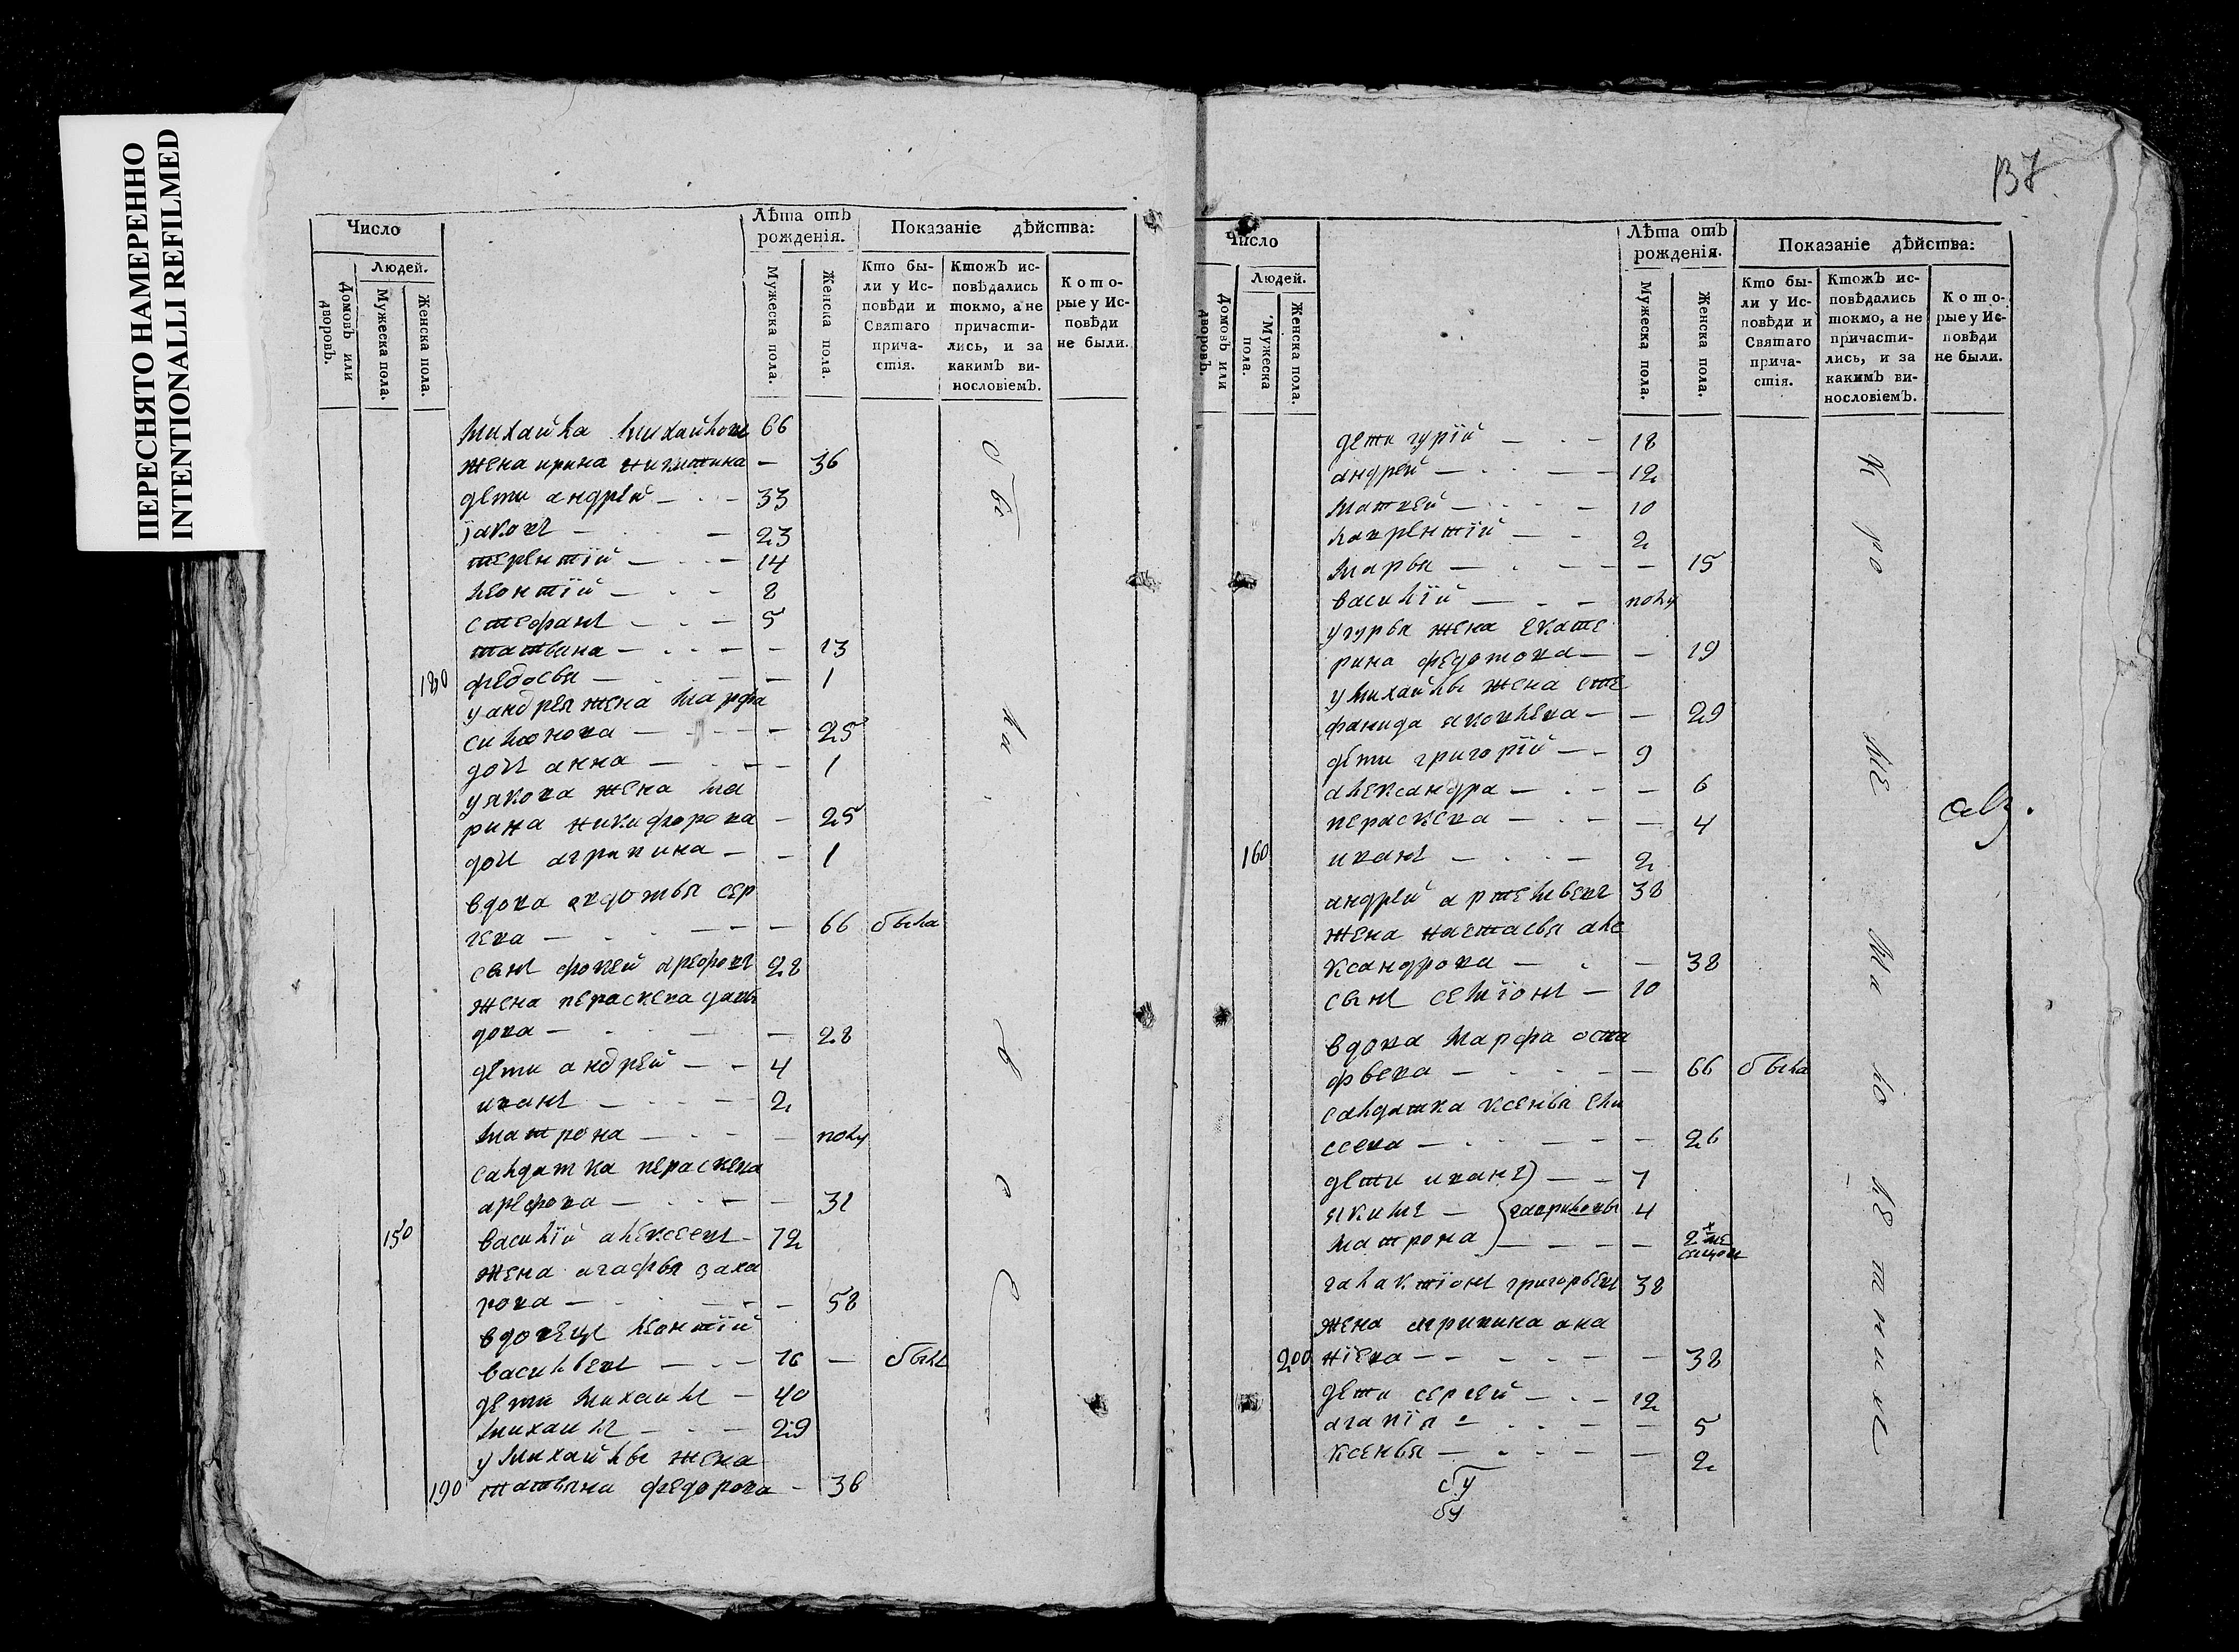 ПЕРЕСНЯТО НАМЕРЕННО
INTENTIONALLI REFILMED
Число
Людей.
Домовъ или дворовъ.
Мужеска пола.
Женска пола.
Лѣта отъ рожденія.
Мужеска пола.
Женска пола.
Показаніе дѣйства:
Кто были у Исповѣди и Святаго причастія.
Ктожъ исповѣдались токмо, а не причастились, и за какимъ винословіемъ.
Которые у Исповѣди не были.
михайла михайлов 66
жена ирина никитина — 36
дети андрей — 33
іаковъ — 23
терентїй — 14
леонтїй — 8
стефанъ — 5
татьяна — 13
180 федосья — 1
у андрея жена марфа
силионова — 25
дочь анна — 1
у якова жена ма
рина никифорова — 25
дочь аграпина — 1
вдова авдотья сер
геева — 66 была
сынъ фокей арефовъ 28
жена пераскева давы
дова — 28
дети андрей — 4
иванъ — 2
матрона — полу
салдатка пераскева
арефова — 31
150 василїй алексеевъ 72
жена агафья заха
рова — 58
вдовецъ леонтїй
васильевъ — 76 — былъ
дети михаилъ — 40
михаилъ — 29
у михайлы жена
190 татьяна федорова — 36
137
Число
Людей.
Домовъ или дворовъ.
Мужеска пола.
Женска пола.
Лѣта отъ рожденія.
Мужеска пола.
Женска пола.
Показаніе дѣйства:
Кто были у Исповѣди и Святаго причастія.
Ктожъ исповѣдались токмо, а не причастились, и за какимъ винословіемъ.
Которые у Исповѣди не были.
дети гурїй — 18
андрей — 12
матвей — 10
лаврентїй — 2
марья — 15
василїй — полу
у гурья жена екате
рина федотова — 19
у михайлы жена сте
фанида яковлева — 29
дети григорїй — 9
александра — 6
пераскева — 4
160 иванъ — 2
андрей артемьевъ 38
жена настасья але
ксандрова — 38
сынъ семїонъ — 10
вдова марфа оста
фьева — 66 была
салдатка ксенья ели
сеева — 26
дети иванъ — 7
якимъ — гавриловы 4
матрона — 2
галактїонъ григорьевъ 38
жена агрипина ана
200 нїева — 38
дети сергей — 12
агапїя — 5
ксенья — 2
кроме
малолетныхъ